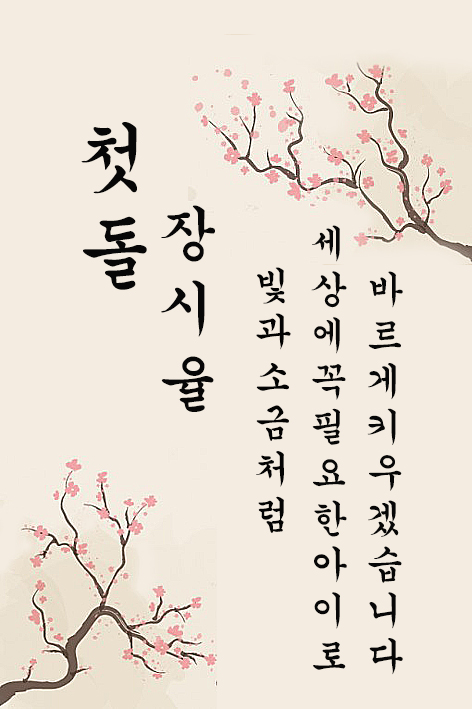 첫돌
장시율
빛과소금처럼
세상에꼭필요한아이로
바르게키우겠습니다